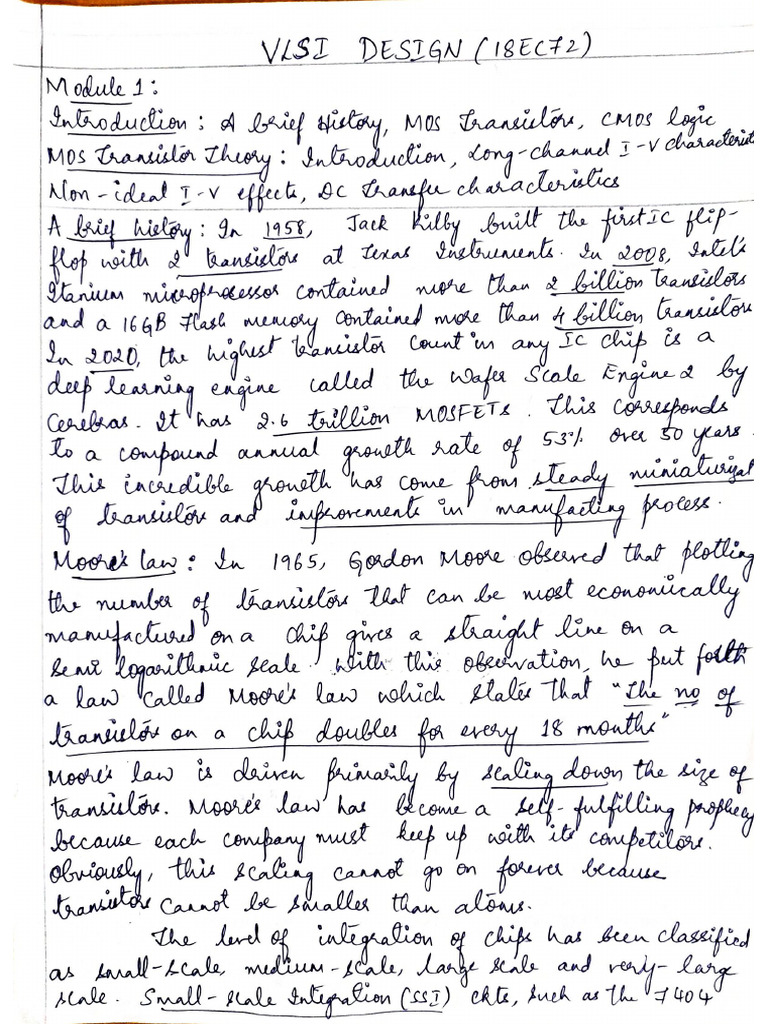 VLSI DESIGN (18EC72)
Module 1:
Introduction: A brief History, MOS Transistors, CMOS logic
MOS Transistor Theory: Introduction, Long-channel I-V characterist
Non-ideal I-V effects, DC Transfer characteristics
A brief history: In 1958, Jack Kilby built the first IC flip-
flop with 2 transistors at Texas Instruments. In 2008, Intel's
Itanium microprocessor contained more than 2 billion transistors
and a 16GB Flash memory contained more than 4 billion transistors
In 2020, the highest transistor count in any IC chip is a
deep learning engine called the Wafer Scale Engine 2 by
Cerebras. It has 2.6 trillion MOSFETs. This corresponds
to a compound annual growth rate of 53% over 50 years.
This incredible growth has come from steady miniaturizat
of transistors and improvements in manufacting process.
Moore's law: In 1965, Gordon Moore observed that plotting
the number of transistors that can be most economically
manufactured on a chip gives a straight line on a
semi logarithmic scale. With this observation, he put forth
a law called Moore's law which states that "The no of
transistors on a chip doubles for every 18 months"
Moore's law is driven primarily by scaling down the size of
transistors. Moore's law has become a self-fulfilling prophecy
because each company must keep up with its competitors.
Obviously, this scaling cannot go on forever because
transistors cannot be smaller than atoms.
The level of integration of chips has been classified
as small-scale, medium-scale, large scale and very-large
scale. Small-scale Integration (SSI) ckts, such as the 7404